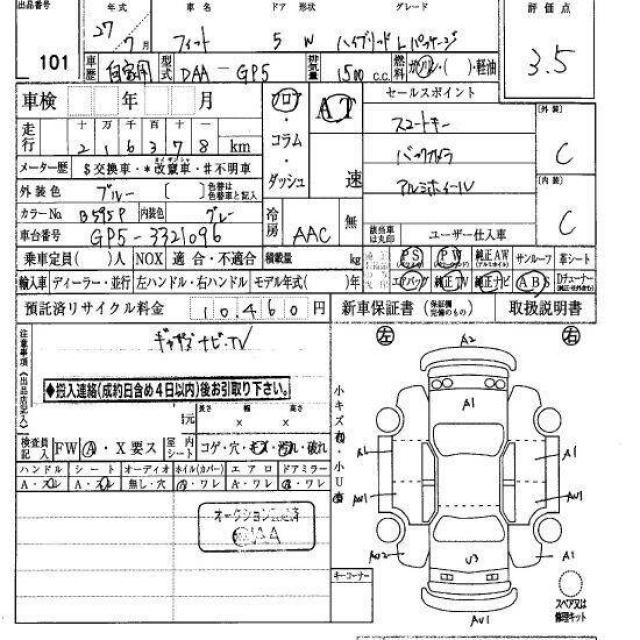 出品番号 年式 車名 ドア 形状 グレード 評価点
101 27年 7月 フィット 5 W ハイブリッド Lパッケージ 3.5
車歴 自家用 型式 DAA-GP5 排気量 1500 c.c. 燃料 ガソリン・( )・軽油
車検 年 月 フロア・コラム・ダッシュ AT 速 セールスポイント
スマートキー
バックカメラ
アルミホイール
外装 C
内装 C
走行 十 万 千 百 十
2 1 6 3 7 8 km
メーター歴 $交換車・*改竄車・#不明車
外装色 ブルー [ ] 色替は色替車と記入
カラーNo. B595P 内装色 グレー
冷房 AAC 無 該当車は丸印 ユーザー仕入車
車台番号 GP5-3321096
乗車定員( )人 NOX 適合・不適合 積載量 kg PS PW 純正AW サンルーフ 革シート
輸入車 ディーラー・並行 左ハンドル・右ハンドル モデル年式( )年 エアバッグ 純正TV 純正ナビ ABS Dチューナー
預託済リサイクル料金 10,460円 新車保証書 (保証欄完備のもの) 取扱説明書
注意事項(出品店記入) ギャザズナビ・TV
◆搬入連絡(成約日含め4日以内)後お引取り下さい。
元 長さ 幅 高さ
× ×
検査員記入 FW A・X要ス 室内シート コゲ・穴・キズ・汚れ・破れ
ハンドル シート オーディオ ホイル(カバー) エアロ ドアミラー
A・スレ A・スレ 無し・穴 A・ワレ A・ワレ A・ワレ
キーコーナー
左 右
A2
A1
A1 A1
AU1 AU1
AU2 A1
U3
AU1
スペア又は
修理キット